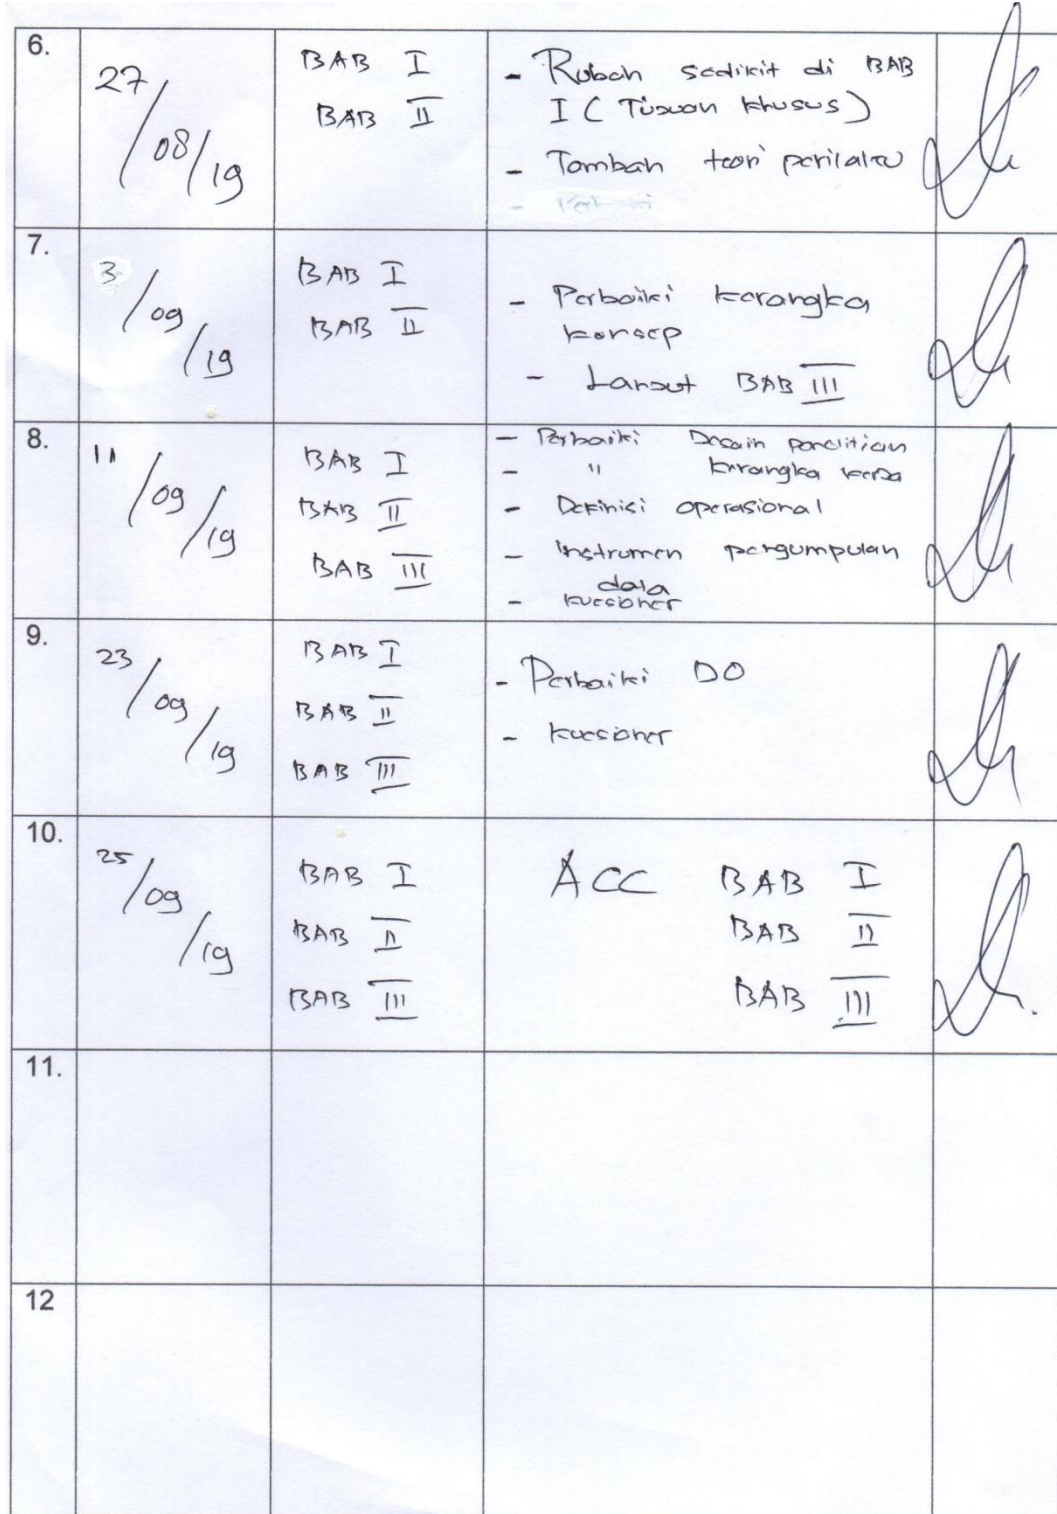 6.
27/08/19
BAB I
BAB II
- Rubah sedikit di BAB
I (Tujuan khusus)
- Tambah teori perilaku
7.
3/09/19
BAB I
BAB II
- Perbaiki kerangka
konsep
- Lanjut BAB III
8.
11/09/19
BAB I
BAB II
BAB III
- Perbaiki Desain penelitian
- " kerangka kerja
- Definisi operasional
- Instrumen pengumpulan
data
- kuesioner
9.
23/09/19
BAB I
BAB II
BAB III
- Perbaiki DO
- kuesioner
10.
25/09/19
BAB I
BAB II
BAB III
ACC BAB I
BAB II
BAB III
11.
12